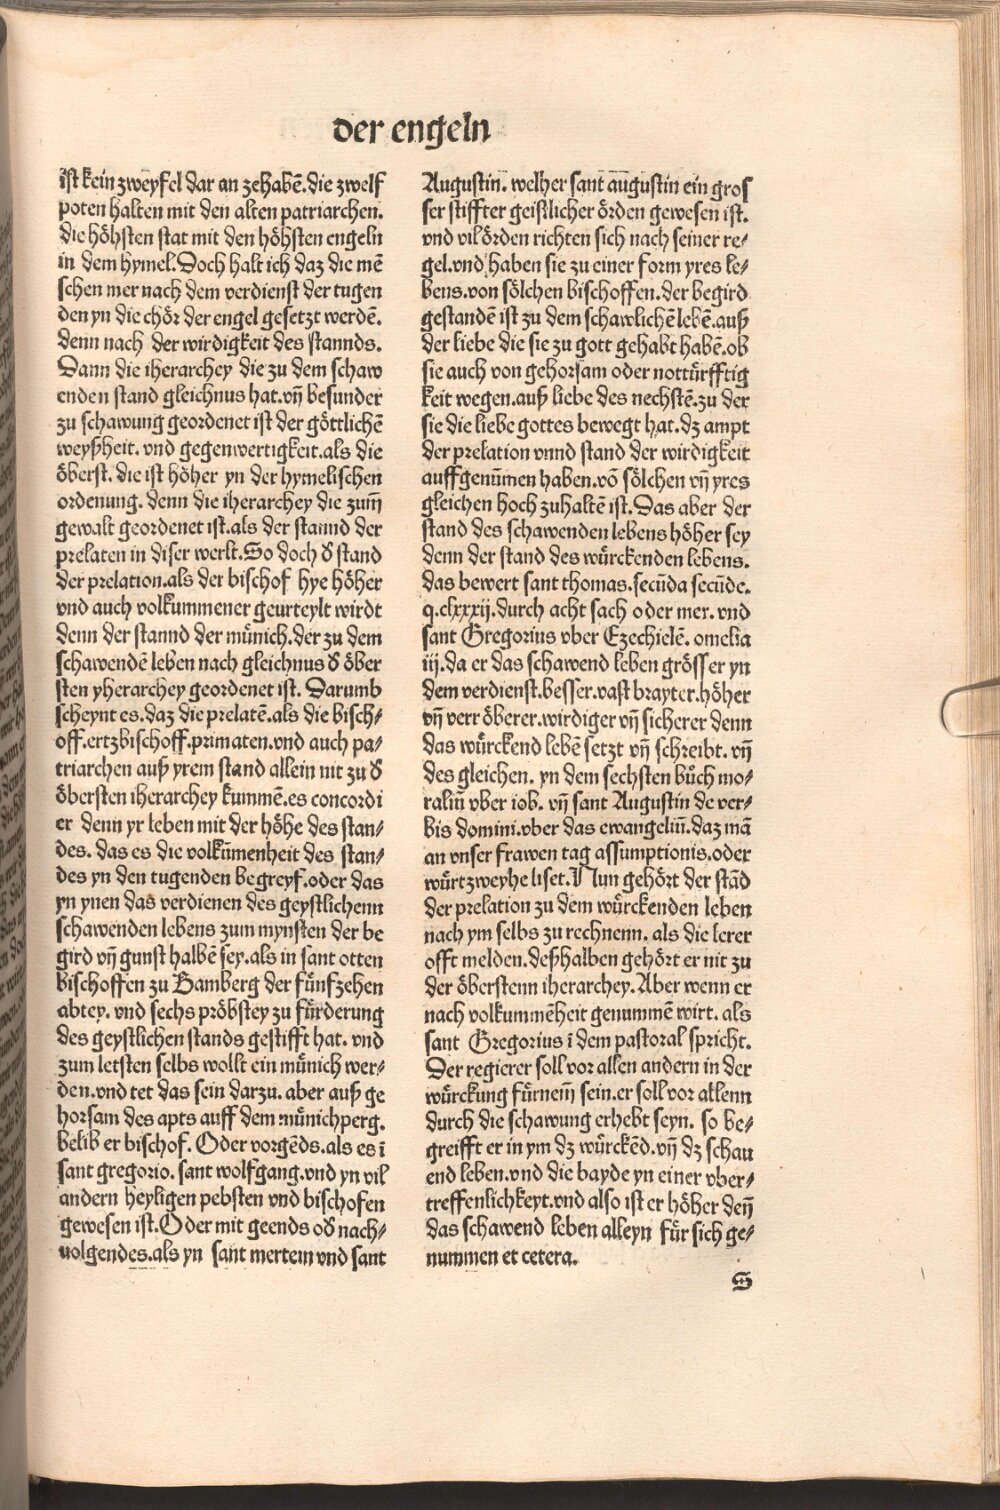 der engeln
ist kein zweyfel dar an zehabē. die zwelf
poten halten mit den alten patriarchen.
die höhsten stat mit den höhsten engeln
in dem hymel. Doch halt ich daz die mē
schen mer nach dem verdienst der tugen
den yn die chör der engel gesetzt werdē.
denn nach der wirdigkeit des stannds.
Dann die iherarchey die zu dem schaw
enden stand gleichnus hat. vñ besunder
zu schawung geordenet ist der göttlichē
weyßheit. vnd gegenwertigkeit. als die
öberst. die ist höher yn der hymelischen
ordenung. denn die iherarchey die zum̄
gewalt geordenet ist. als der stannd der
prelaten in diser werlt. So doch d̕ stand
der prelation. als der bischof hye höher
vnd auch volkummener geurteylt wirdt
denn der stannd der münich. der zu dem
schawendē leben nach gleichnus d̕ öber
sten yherarchey geordenet ist. Darumb
scheynt es. daz die prelatē. als die bisch⸗
off. ertzbischoff. primaten. vnd auch pa⸗
triarchen auß yrem stand allein nit zu d̕
öbersten iherarchey kummē. es concordi
er denn yr leben mit der höhe des stan⸗
des. das es die volkūmenheit des stan⸗
des yn den tugenden begreyf. oder das
yn ynen das verdienen des geystlichenn
schawenden lebens zum mynsten der be
gird vñ gunst halbē sey. als in sant otten
bischoffen zu Bamberg der fünfzehen
abtey. vnd sechs pröbstey zu fürderung
des geystlichen stands gestifft hat. vnd
zum letsten selbs wollt ein münich wer⸗
den. vnd tet das sein darzu. aber auß ge
horsam des apts auff dem münichperg.
belib er bischof. Oder vorgēds. als es ī
sant gregorio. sant wolfgang. vnd yn vil
andern heyligen pebsten vnd bischofen
gewesen ist. Oder mit geends od̕ nach⸗
uolgendes. als yn sant mertein vnd sant
Augustin. welher sant augustin ein gros
ser stiffter geistlicher örden gewesen ist.
vnd vil örden richten sich nach seiner re⸗
gel. vnd haben sie zu einer form yres le⸗
bens. von sölchen bischoffen. der begird
gestandē ist zu dem schawlichē lebē. auß
der liebe die sie zu gott gehabt habē. ob
sie auch von gehorsam oder nottürfftig
keit wegen. auß liebe des nechstē. zu der
sie die liebe gottes bewegt hat. dz ampt
der prelation vnnd stand der wirdigkeit
auffgenūmen haben. vō sölchen vñ yres
gleichen hoch zuhaltē ist. Das aber der
stand des schawenden lebens höher sey
denn der stand des würckenden lebens.
das bewert sant thomas. secūda secūde.
q. clxxxij. durch acht sach oder mer. vnd
sant Gregorius vber Ezechielē. omelia
iij. da er das schawend leben grösser yn
dem verdienst. besser. vast brayter. höher
vñ verr öberer. wirdiger vñ sicherer denn
das würckend lebē setzt vñ schreibt. vñ
des gleichen. yn dem sechsten büch mo⸗
raliū vber iob. vñ sant Augustin de ver⸗
bis domini. vber das ewangeliū. daz mā
an vnser frawen tag assumptionis. oder
würtzweyhe liset. Nun gehört der stād
der prelation zu dem würckenden leben
nach ym selbs zu rechnenn. als die lerer
offt melden. deßhalben gehört er nit zu
der öberstenn iherarchey. Aber wenn er
nach volkummēheit genummē wirt. als
sant Gregorius ī dem pastoral spricht.
Der regierer soll vor allen andern in der
würckung fürnem̄ sein. er soll vor allenn
durch die schawung erhebt seyn. so be⸗
greifft er in ym dz würckēd. vñ dz schau
end leben. vnd die bayde yn einer vber⸗
treffenlichkeyt. vnd also ist er höher deñ
das schawend leben alleyn für sich ge⸗
nummen et cetera.
S